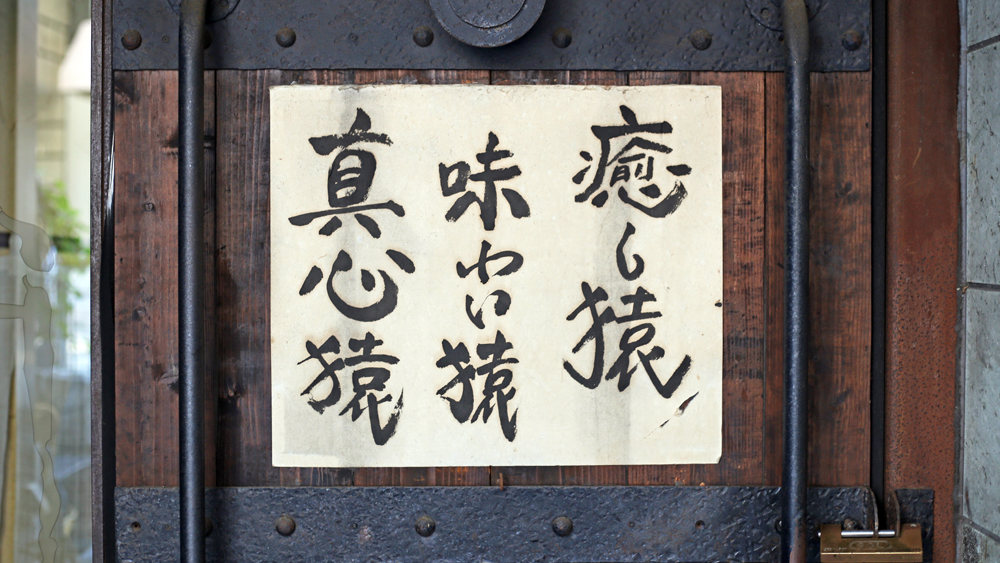 癒し猿
味わい猿
真心猿